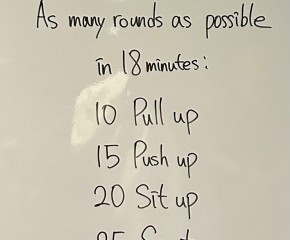 As many rounds as possible
in 18 minutes:
10 Pull up
15 Push up
20 Sit up